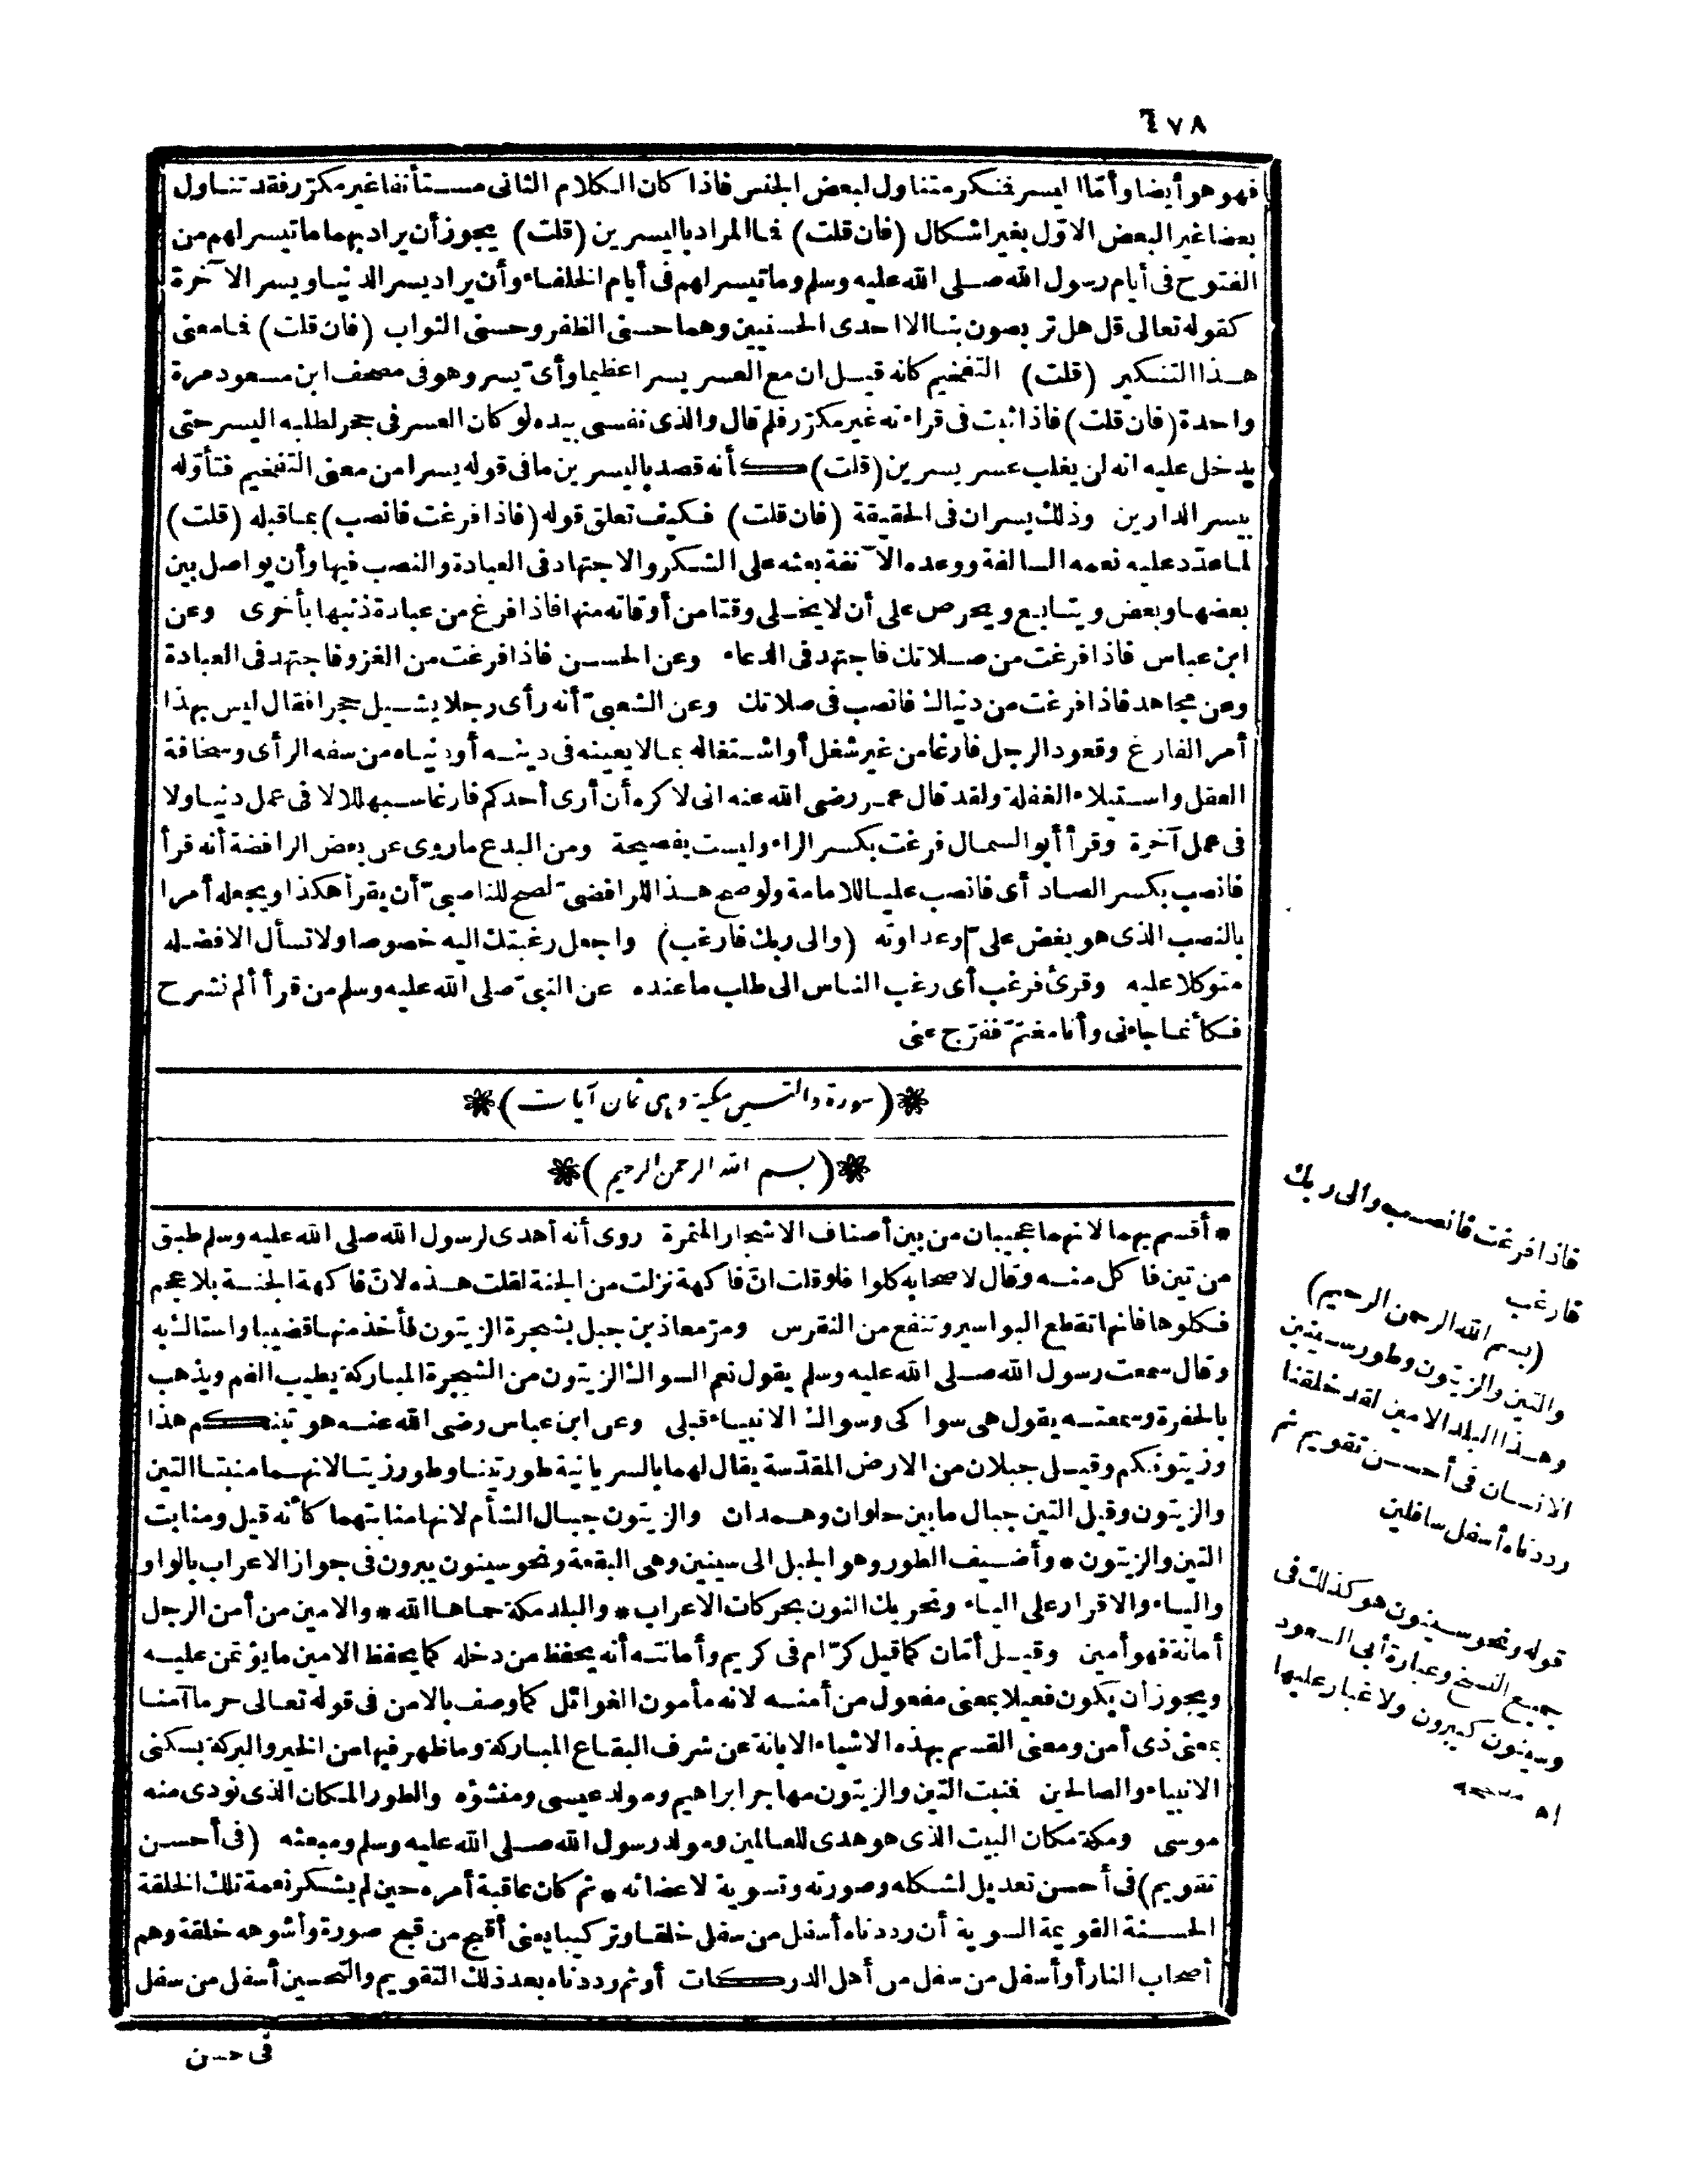 ٦٧٨
فهو هو أيضا وأمّا اليسر فنكر متناول لبعض الجنس فاذا كان الكلام الثانى مستأنفا غير مكرّر فقد تناول
بعضا غير البعض الاوّل بغير اشكال (فان قلت) فما المراد باليسرين (قلت) يجوز أن يراد بهما ما تيسر لهم من
الفتوح فى أيام رسول الله صلى الله عليه وسلم وما تيسر لهم فى أيام الخلفاء وأن يراد يسر الدنيا ويسر الآخرة
كقوله تعالى قل هل تربصون بنا الا احدى الحسنيين وهما حسنى الظفر وحسنى الثواب (فان قلت) فما معنى
هذا التنكير (قلت) التفخيم كانه قيل ان مع العسر يسرا عظيما وأىّ يسر وهو فى مصحف ابن مسعود مرة
واحدة (فان قلت) فاذا ثبت فى قراءته غير مكرّر فلم قال والذى نفسى بيده لو كان العسر فى جحر لطلبه اليسر حتى
يدخل عليه انه لن يغلب عسر يسرين (قلت) كأنه قصد باليسرين ما فى قوله يسرا من معنى التفخيم فتأوّله
بيسر الدارين وذلك يسران فى الحقيقة (فان قلت) فكيف تعلق قوله (فاذا فرغت فانصب) بما قبله (قلت)
لما عدّد عليه نعمه السالفة ووعده الآنفة بعثه على الشكر والاجتهاد فى العبادة والنصب فيها وأن يواصل بين
بعضها وبعض ويتابع ويحرص على أن لا يخلى وقتا من أوقاته منها فاذا فرغ من عبادة ذنبها بأخرى وعن
ابن عباس فاذا فرغت من صلاتك فاجتهد فى الدعاء وعن الحسن فاذا فرغت من الغزو فاجتهد فى العبادة
وعن مجاهد فاذا فرغت من دنياك فانصب فى صلاتك وعن الشعبىّ أنه رأى رجلا يشيل حجرا فقال ليس بهذا
أمر الفارغ وقعود الرجل فارغا من غير شغل أو اشتغاله بما لا يعينه فى دينه أو دنياه من سفه الرأى وسخافة
العقل واستيلاء الغفلة ولقد قال عمر رضى الله عنه انى لاكره أن أرى أحدكم فارغا سبهللا لا فى عمل دنيا ولا
فى عمل آخرة وقرأ أبو السمال فرغت بكسر الراء وليست بفصيحة ومن البدع ما روى عن بعض الرافضة أنه قرأ
فانصب بكسر الصاد أى فانصب عليا للامامة ولو صح هذا للرافضىّ لصح للناصبىّ أن يقرأ هكذا ويجعله أمرا
بالنصب الذى هو بغض علىّ وعداوته (والى ربك فارغب) واجعل رغبتك اليه خصوصا ولا تسأل الا فضله
متوكلا عليه وقرئ فرغب أى رغب الناس الى طلب ما عنده عن النبىّ صلى الله عليه وسلم من قرأ ألم نشرح
فكأنما جاءنى وأنا مغتمّ ففرّج عنى
(سورة والتين مكية وهى ثمان آيات)
(بسم الله الرحمن الرحيم)
* أقسم بهما لانهما عجيبان من بين أصناف الاشجار المثمرة روى أنه أهدى لرسول الله صلى الله عليه وسلم طبق
من تين فاكل منه وقال لاصحابه كلوا فلو قلت انّ فاكهة نزلت من الجنة لقلت هذه لانّ فاكهة الجنة بلا عجم
فكلوها فانها تقطع البواسير وتنفع من النقرس ومرّ معاذ بن جبل بشجرة الزيتون فأخذ منها قضيبا واستاك به
وقال سمعت رسول الله صلى الله عليه وسلم يقول نعم السواك الزيتون من الشجرة المباركة يطيب الفم ويذهب
بالحفرة وسمعته يقول هى سواكى وسواك الانبياء قبلى وعن ابن عباس رضى الله عنه هو تينكم هذا
وزيتونكم وقيل جبلان من الارض المقدّسة يقال لهما بالسريانية طور تينا وطور زيتا لانهما منبتا التين
والزيتون وقيل التين جبال ما بين حلوان وهمدان والزيتون جبال الشأم لانها منابتهما كأنه قيل ومنابت
التين والزيتون * وأضيف الطور وهو الجبل الى سينين وهى البقعة ونحو سينون يبرون فى جواز الاعراب بالواو
والياء والاقرار على الياء وتحريك النون بحركات الاعراب * والبلد مكة حماها الله * والامين من أمن الرجل
أمانة فهو أمين وقيل أمّان كما قيل كرّام فى كريم وأمانته أنه يحفظ من دخله كما يحفظ الامين ما يؤتمن عليه
ويجوز أن يكون فعيلا بمعنى مفعول من أمنه لانه مأمون الغوائل كما وصف بالامن فى قوله تعالى حرما آمنا
بمعنى ذى أمن ومعنى القسم بهذه الاشياء الابانة عن شرف البقاع المباركة وما ظهر فيها من الخير والبركة بسكنى
الانبياء والصالحين فمنبت التين والزيتون مهاجر ابراهيم ومولد عيسى ومنشؤه والطور المكان الذى نودى منه
موسى ومكة مكان البيت الذى هو هدى للعالمين ومولد رسول الله صلى الله عليه وسلم ومبعثه (فى أحسن
تقويم) فى أحسن تعديل لشكله وصورته وتسوية لاعضائه * ثم كان عاقبة أمره حين لم يشكر نعمة تلك الخلقة
الحسنة القويمة السوية أن رددناه أسفل من سفل خلقا وتركيبا يعنى أقبح من قبح صورة وأشوهه خلقة وهم
أصحاب النار أو أسفل من سفل من أهل الدركات أو ثم رددناه بعد ذلك التقويم والتحسين أسفل من سفل
فى حسن
فاذا فرغت فانصب والى ربك
فارغب
(بسم الله الرحمن الرحيم)
والتين والزيتون وطور سينين
وهذا البلد الامين لقد خلقنا
الانسان فى أحسن تقويم ثم
رددناه أسفل سافلين
قوله ونحو سينون هو كذلك فى
جميع النسخ وعبارة أبى السعود
وسينون كيبرون ولا غبار عليها
اه مصححه